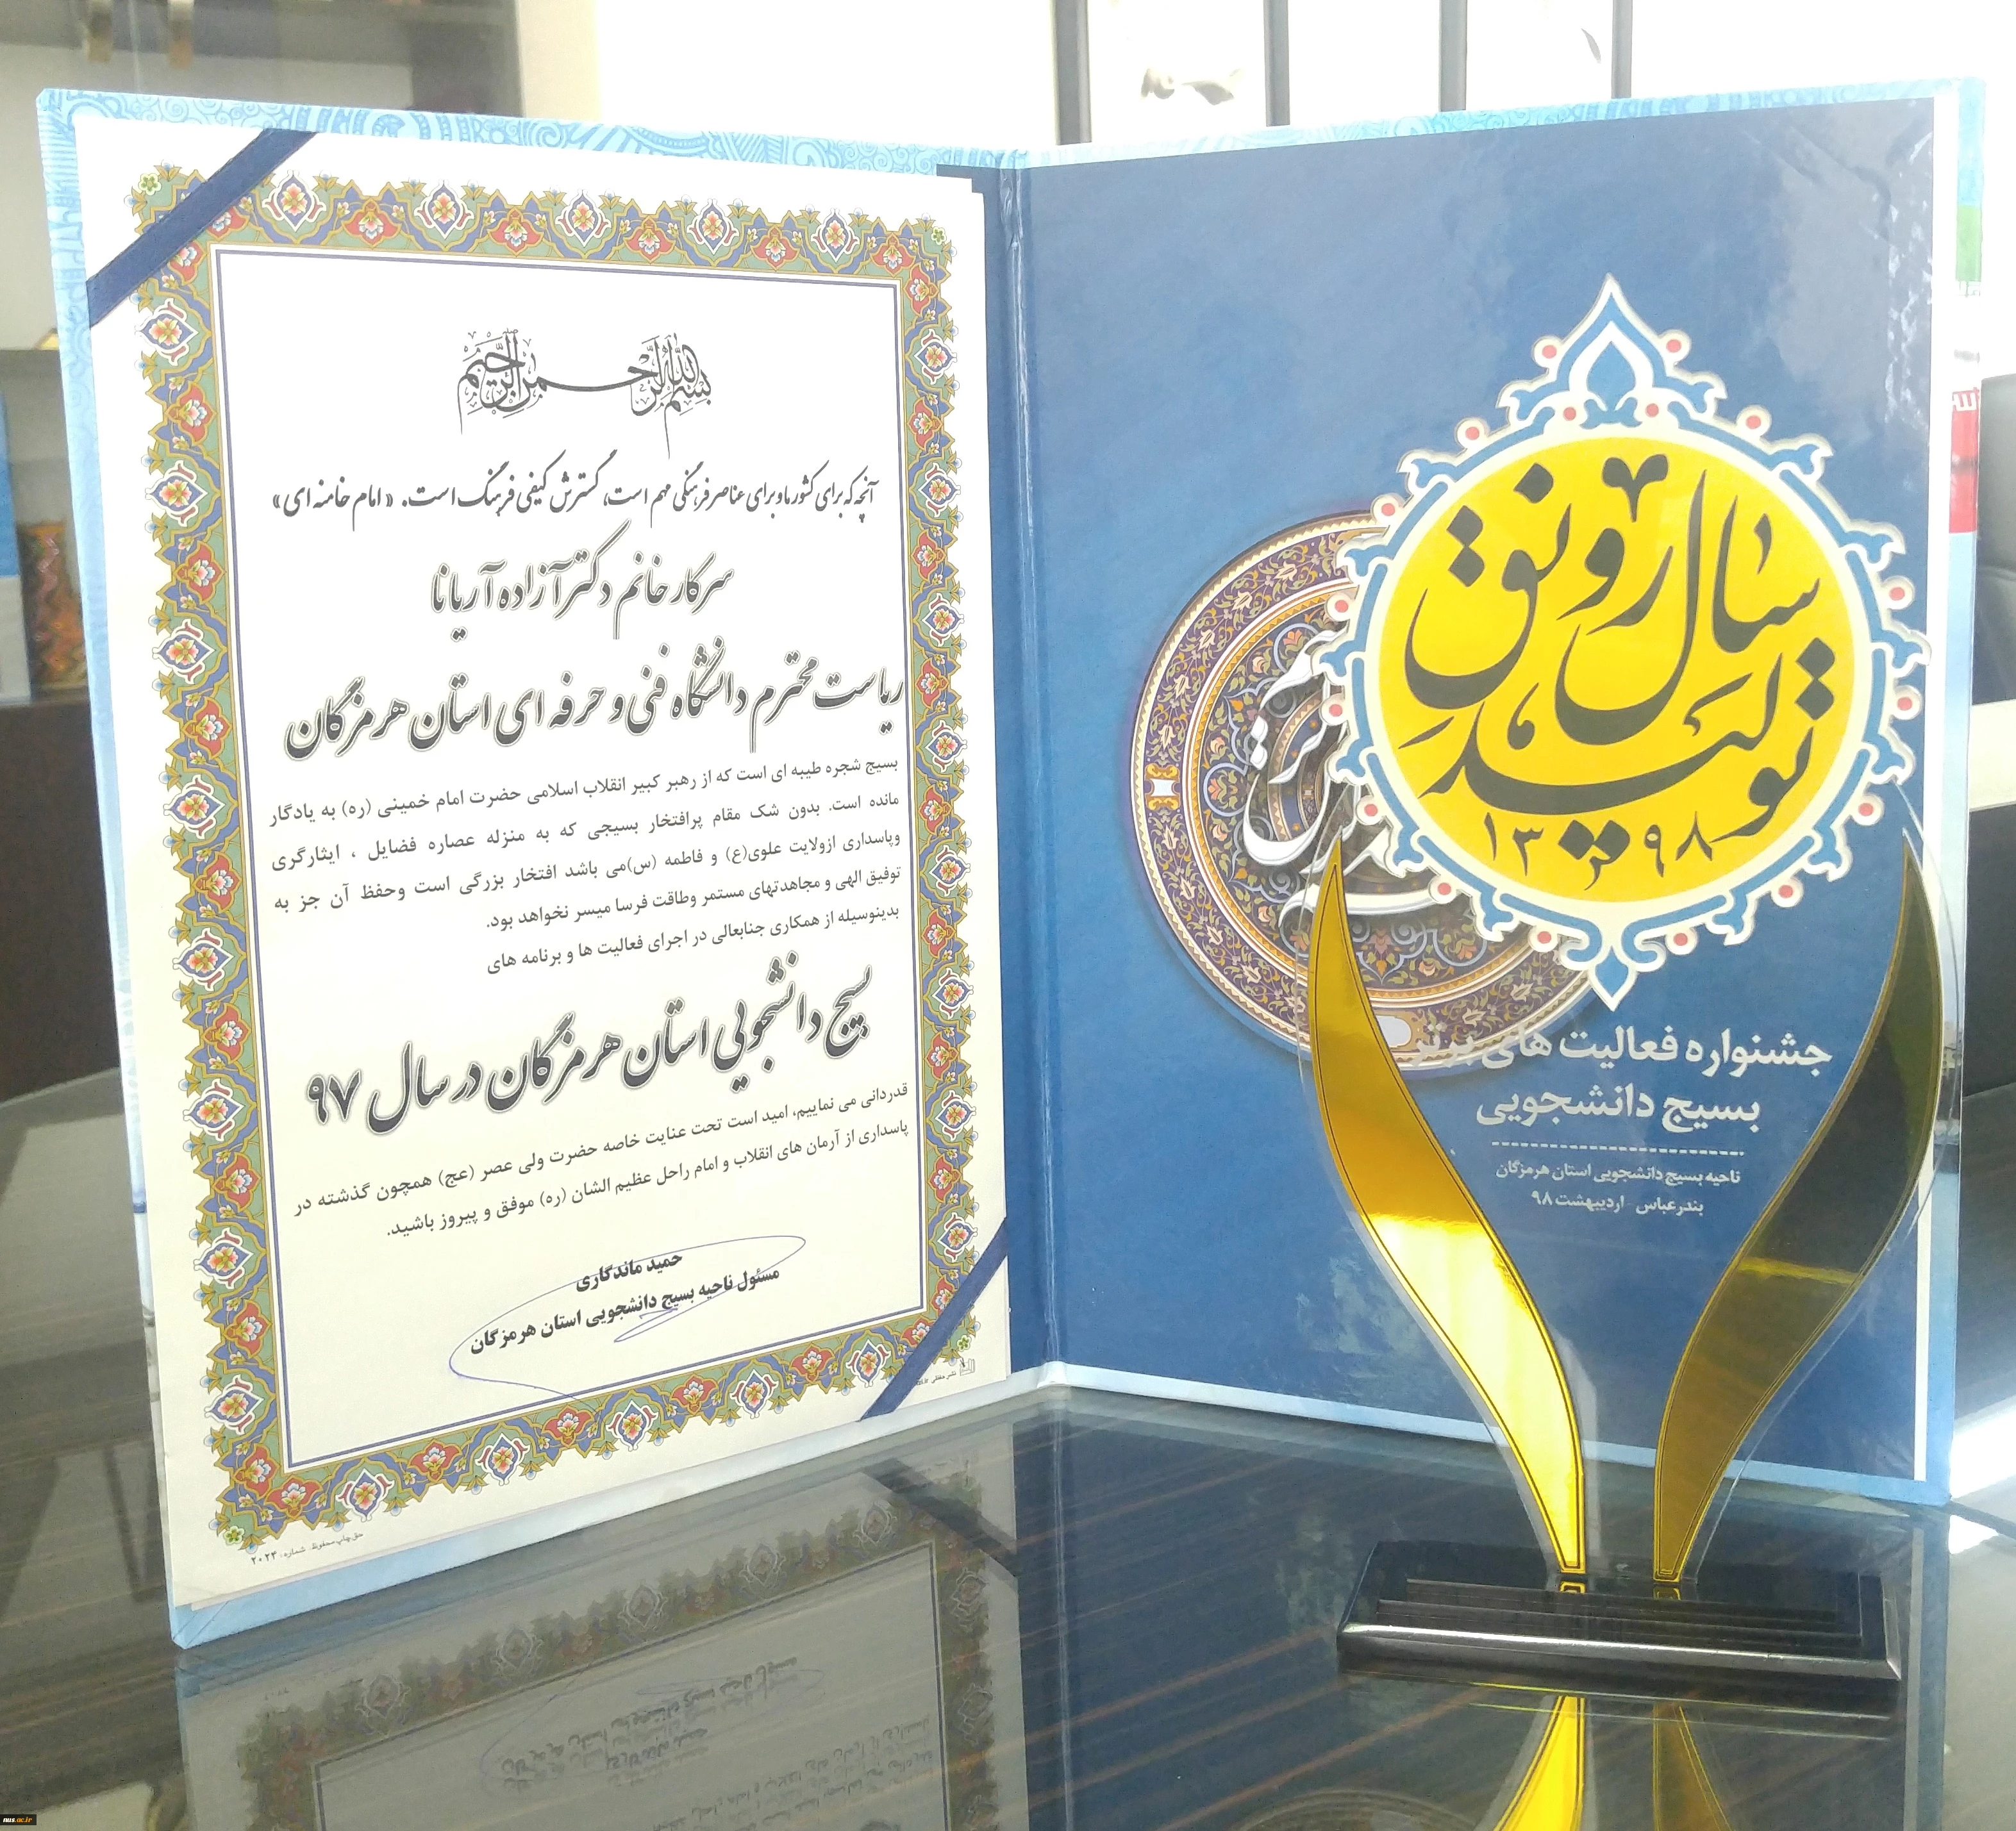 بسم الله الرحمن الرحیم
آنچه که برای کشور ما و برای عناصر فرهنگی مهم است، گسترش کیفی فرهنگ است. «امام خامنه ای»
سرکار خانم دکتر آزاده آریانا
ریاست محترم دانشگاه فنی و حرفه ای استان هرمزگان
بسیج شجره طیبه ای است که از رهبر کبیر انقلاب اسلامی حضرت امام خمینی (ره) به یادگار
مانده است. بدون شک مقام پرافتخار بسیجی که به منزله عصاره فضایل ، ایثارگری
وپاسداری ازولایت علوی(ع) و فاطمه (س)می باشد افتخار بزرگی است وحفظ آن جز به
توفیق الهی و مجاهدتهای مستمر وطاقت فرسا میسر نخواهد بود.
بدینوسیله از همکاری جنابعالی در اجرای فعالیت ها و برنامه های
بسیج دانشجویی استان هرمزگان در سال ۹۷
قدردانی می نماییم، امید است تحت عنایت خاصه حضرت ولی عصر (عج) همچون گذشته در
پاسداری از آرمان های انقلاب و امام راحل عظیم الشان (ره) موفق و پیروز باشید.
حمید ماندگاری
مسئول ناحیه بسیج دانشجویی استان هرمزگان
حق چاپ محفوظ. شماره: ۲۰۲۳
سال رونق
تولید
۱۳۹۸
جشنواره فعالیت های برتر
بسیج دانشجویی
ناحیه بسیج دانشجویی استان هرمزگان
بندرعباس - اردیبهشت ۹۸
nus.ac.ir